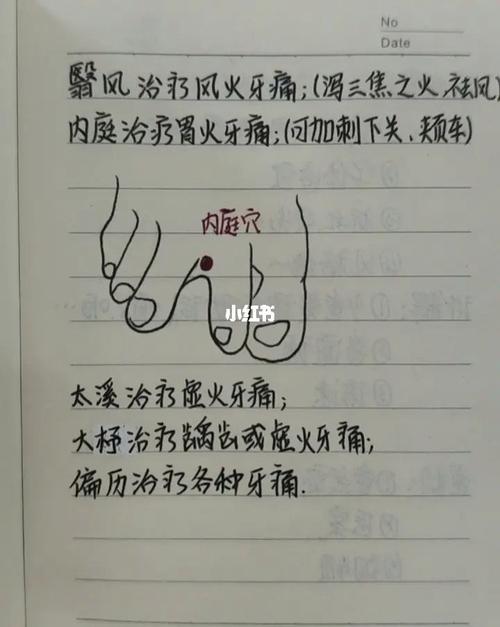 No
Date
翳风治疗风火牙痛;(泻三焦之火,祛风)
内庭治疗胃火牙痛;(可加刺下关、颊车)
内庭穴
小红书
太溪治疗虚火牙痛;
大杼治疗龋齿或虚火牙痛;
偏历治疗各种牙痛.